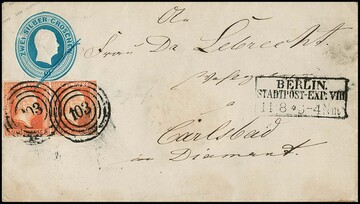 ZWEI SILBER GROSCHEN
An
Frau Dr. Lebrecht.
BERLIN.
STADTPOST-EXP. VIII
11 8 3-4 N
103
103
à
Carlsbad
im Diamant.